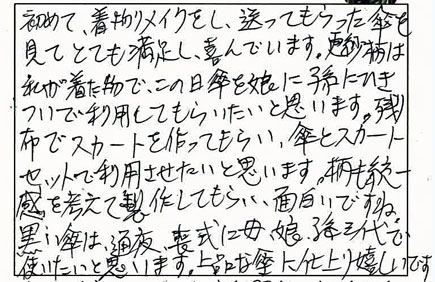 初めて、着物リメイクをし、送ってもらった傘を
見てとても満足し、喜んでいます。更紗柄は
私が着た物で、この日傘を娘に孫にひき
ついで利用してもらいたいと思います。残
布でスカートを作ってもらい、傘とスカート
セットで利用させたいと思います。柄も統一
感を考えて製作してもらい、面白いですね。
黒い傘は、通夜、喪式に母、娘、孫三代で
使いたいと思います。上品な傘に仕上り嬉しいです